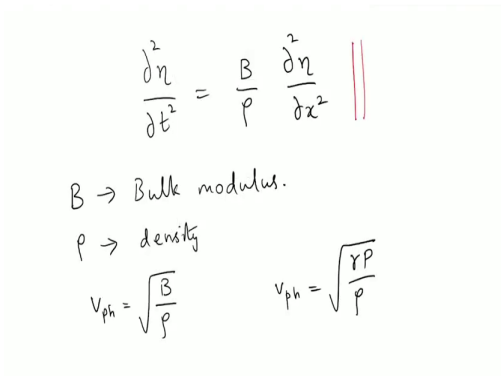 ∂²η/∂t² = B/ρ ∂²η/∂x²
B → Bulk modulus.
ρ → density
v_ph = √(B/ρ)
v_ph = √(γP/ρ)